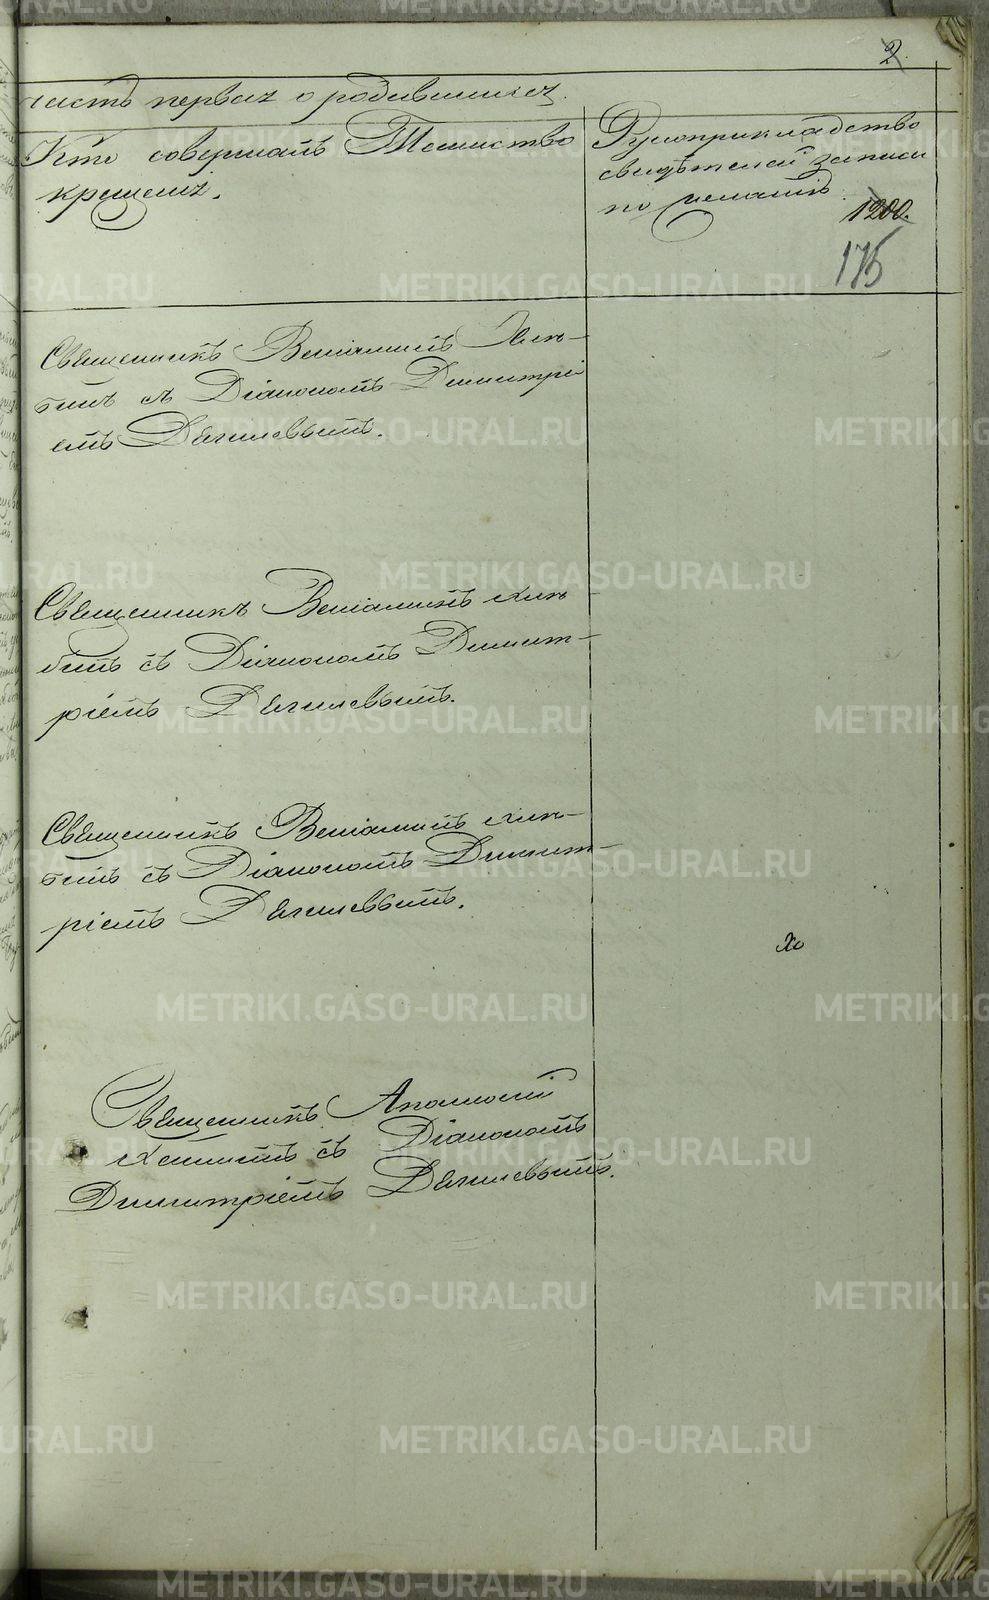 2
часть первая о родившихся.
Кто совершалъ Таинство
крещенія.
Рукоприкладство
свидѣтелей записи
по желанію
1200.
175
Священникъ Веніаминъ
с Діакономъ Димитрі
емъ Дягилевымъ.
Священникъ Веніаминъ
съ Діакономъ Димит-
ріемъ Дягилевымъ.
Священникъ Веніаминъ
съ Діакономъ Димит-
ріемъ Дягилевымъ.
Священникъ
съ Діакономъ
Димитріемъ Дягилевымъ.
METRIKI.GASO-URAL.RU